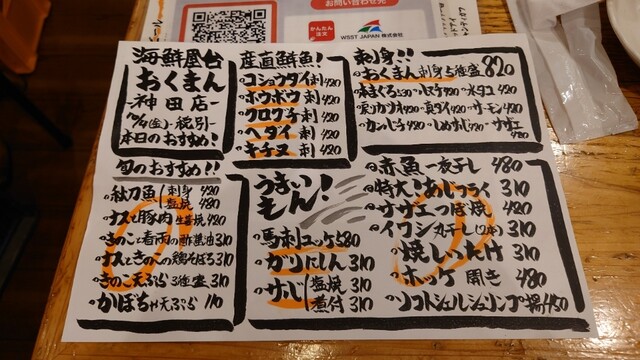 お問い合わせ先
かんたん
注文
WSST JAPAN 株式会社
海鮮屋台
おくまん
-神田店-
10/4(金)-税別-
本日のおすすめ!
産直鮮魚!
コショウダイ刺420
ホウボウ 刺420
クログチ 刺420
ヘダイ 刺420
キチヌ 刺420
刺身!!
・おくまん刺身5種盛 820
・ハマチ420 ・水ダコ420
・真ダイ420 ・サーモン420
・カンパチ420 ・しめさば420 ・サザエ420
旬のおすすめ!!
・秋刀魚 刺身 420
塩焼 480
・ナスと豚肉 生姜焼 420
・きのこと春雨の酢醤油310
・ナスときのこの鶏そぼろ310
・きのこ天ぷら 3種盛 310
・かぼちゃ天ぷら 110
うまいもん!
・馬刺ユッケ580
・ガツにしん 310
・サバ 塩焼 310
煮付 310
・赤魚 一夜干し 480
・特大!あじフライ 310
・サザエつぼ焼 420
・イワシ丸干し(2本) 310
・焼しいたけ 310
・ホッケ 開き 480
・ソフトシェルシュリンプ唐揚450